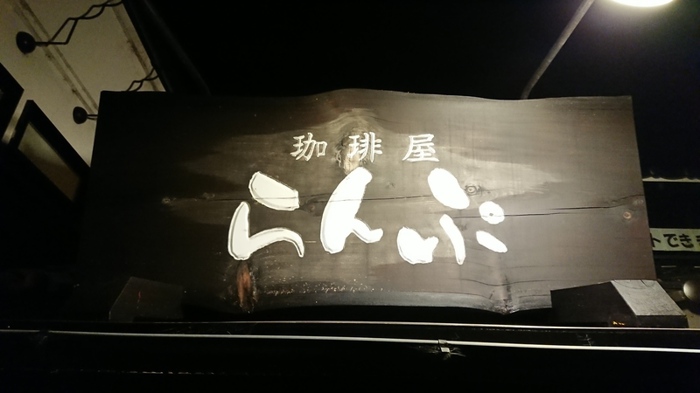 珈琲屋
らんぷ
トできま